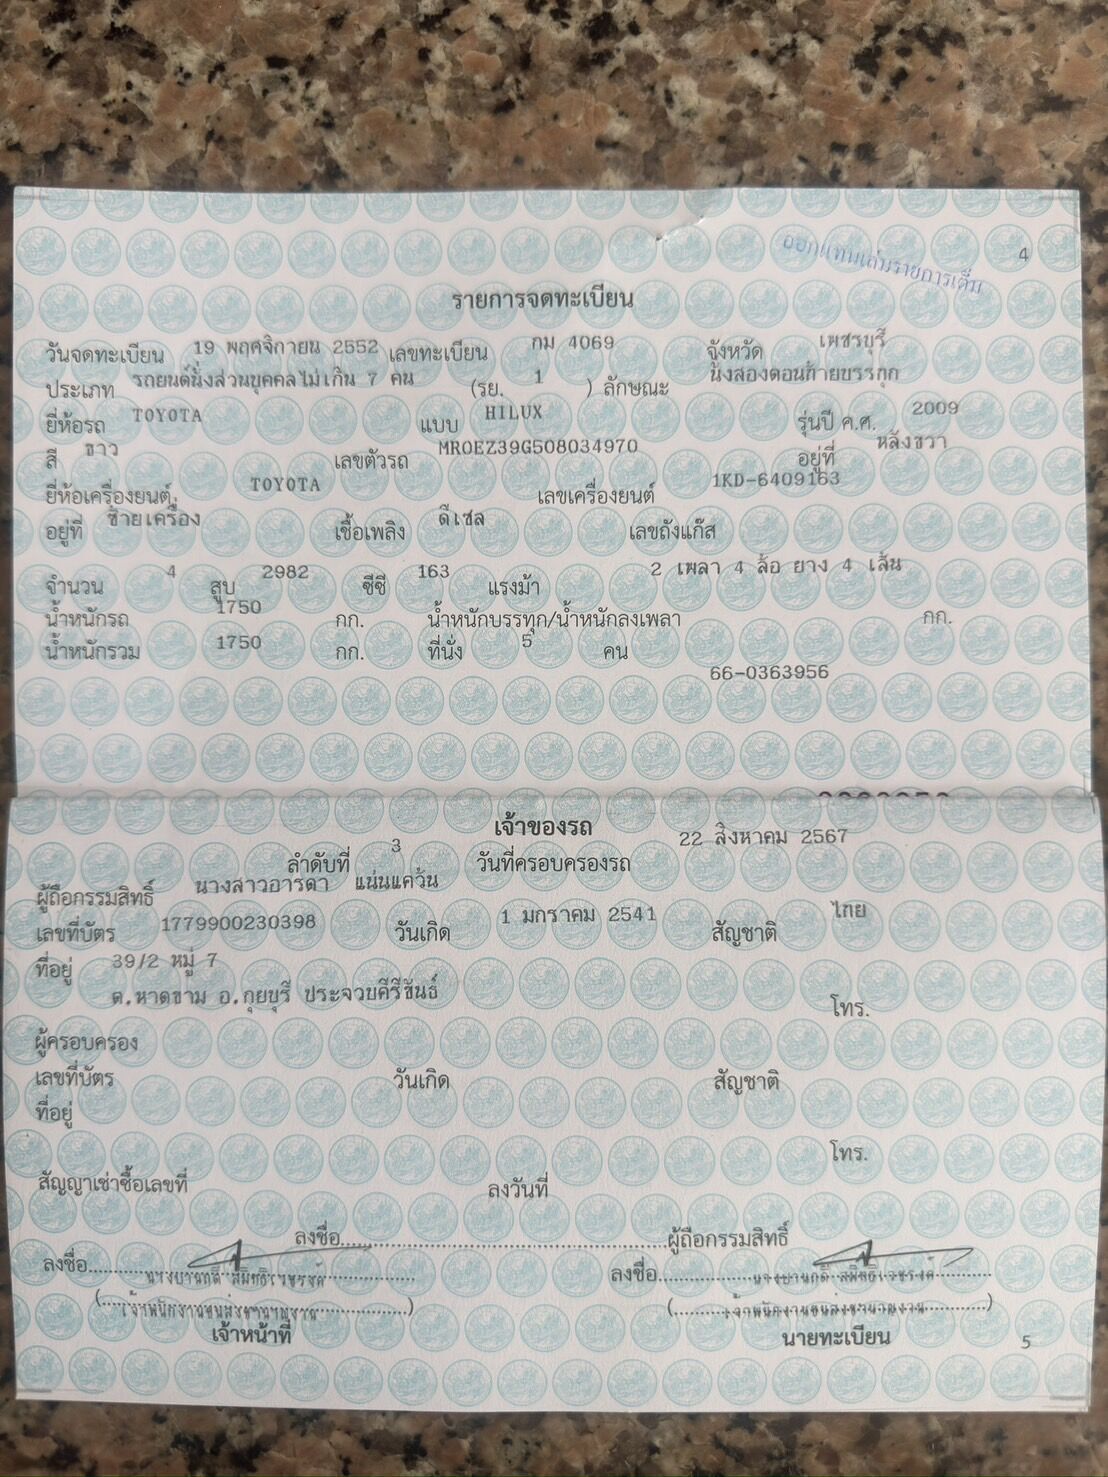 ออกแทนเล่มรายการเต็ม
4
รายการจดทะเบียน
วันจดทะเบียน 19 พฤศจิกายน 2552 เลขทะเบียน กม 4069 จังหวัด เพชรบุรี
ประเภท รถยนต์นั่งส่วนบุคคลไม่เกิน 7 คน (รย. 1 ) ลักษณะ นั่งสองตอนท้ายบรรทุก
ยี่ห้อรถ TOYOTA แบบ HILUX รุ่นปี ค.ศ. 2009
สี ขาว เลขตัวรถ MR0EZ39G508034970 อยู่ที่ หลังขวา
ยี่ห้อเครื่องยนต์ TOYOTA เลขเครื่องยนต์ 1KD-6409163
อยู่ที่ ซ้ายเครื่อง เชื้อเพลิง ดีเซล เลขถังแก๊ส
จำนวน 4 สูบ 2982 ซีซี 163 แรงม้า 2 เพลา 4 ล้อ ยาง 4 เส้น
น้ำหนักรถ 1750 กก. น้ำหนักบรรทุก/น้ำหนักลงเพลา กก.
น้ำหนักรวม 1750 กก. ที่นั่ง 5 คน
66-0363956
เจ้าของรถ
ลำดับที่ 3 วันที่ครอบครองรถ 22 สิงหาคม 2567
ผู้ถือกรรมสิทธิ์ นางสาวอารดา แน่นแคว้น
เลขที่บัตร 1779900230398 วันเกิด 1 มกราคม 2541 สัญชาติ ไทย
ที่อยู่ 39/2 หมู่ 7
ต.หาดขาม อ.กุยบุรี ประจวบคีรีขันธ์ โทร.
ผู้ครอบครอง
เลขที่บัตร วันเกิด สัญชาติ
ที่อยู่
โทร.
สัญญาเช่าซื้อเลขที่ ลงวันที่
ลงชื่อ ผู้ถือกรรมสิทธิ์
ลงชื่อ ลงชื่อ
เจ้าหน้าที่ นายทะเบียน
5